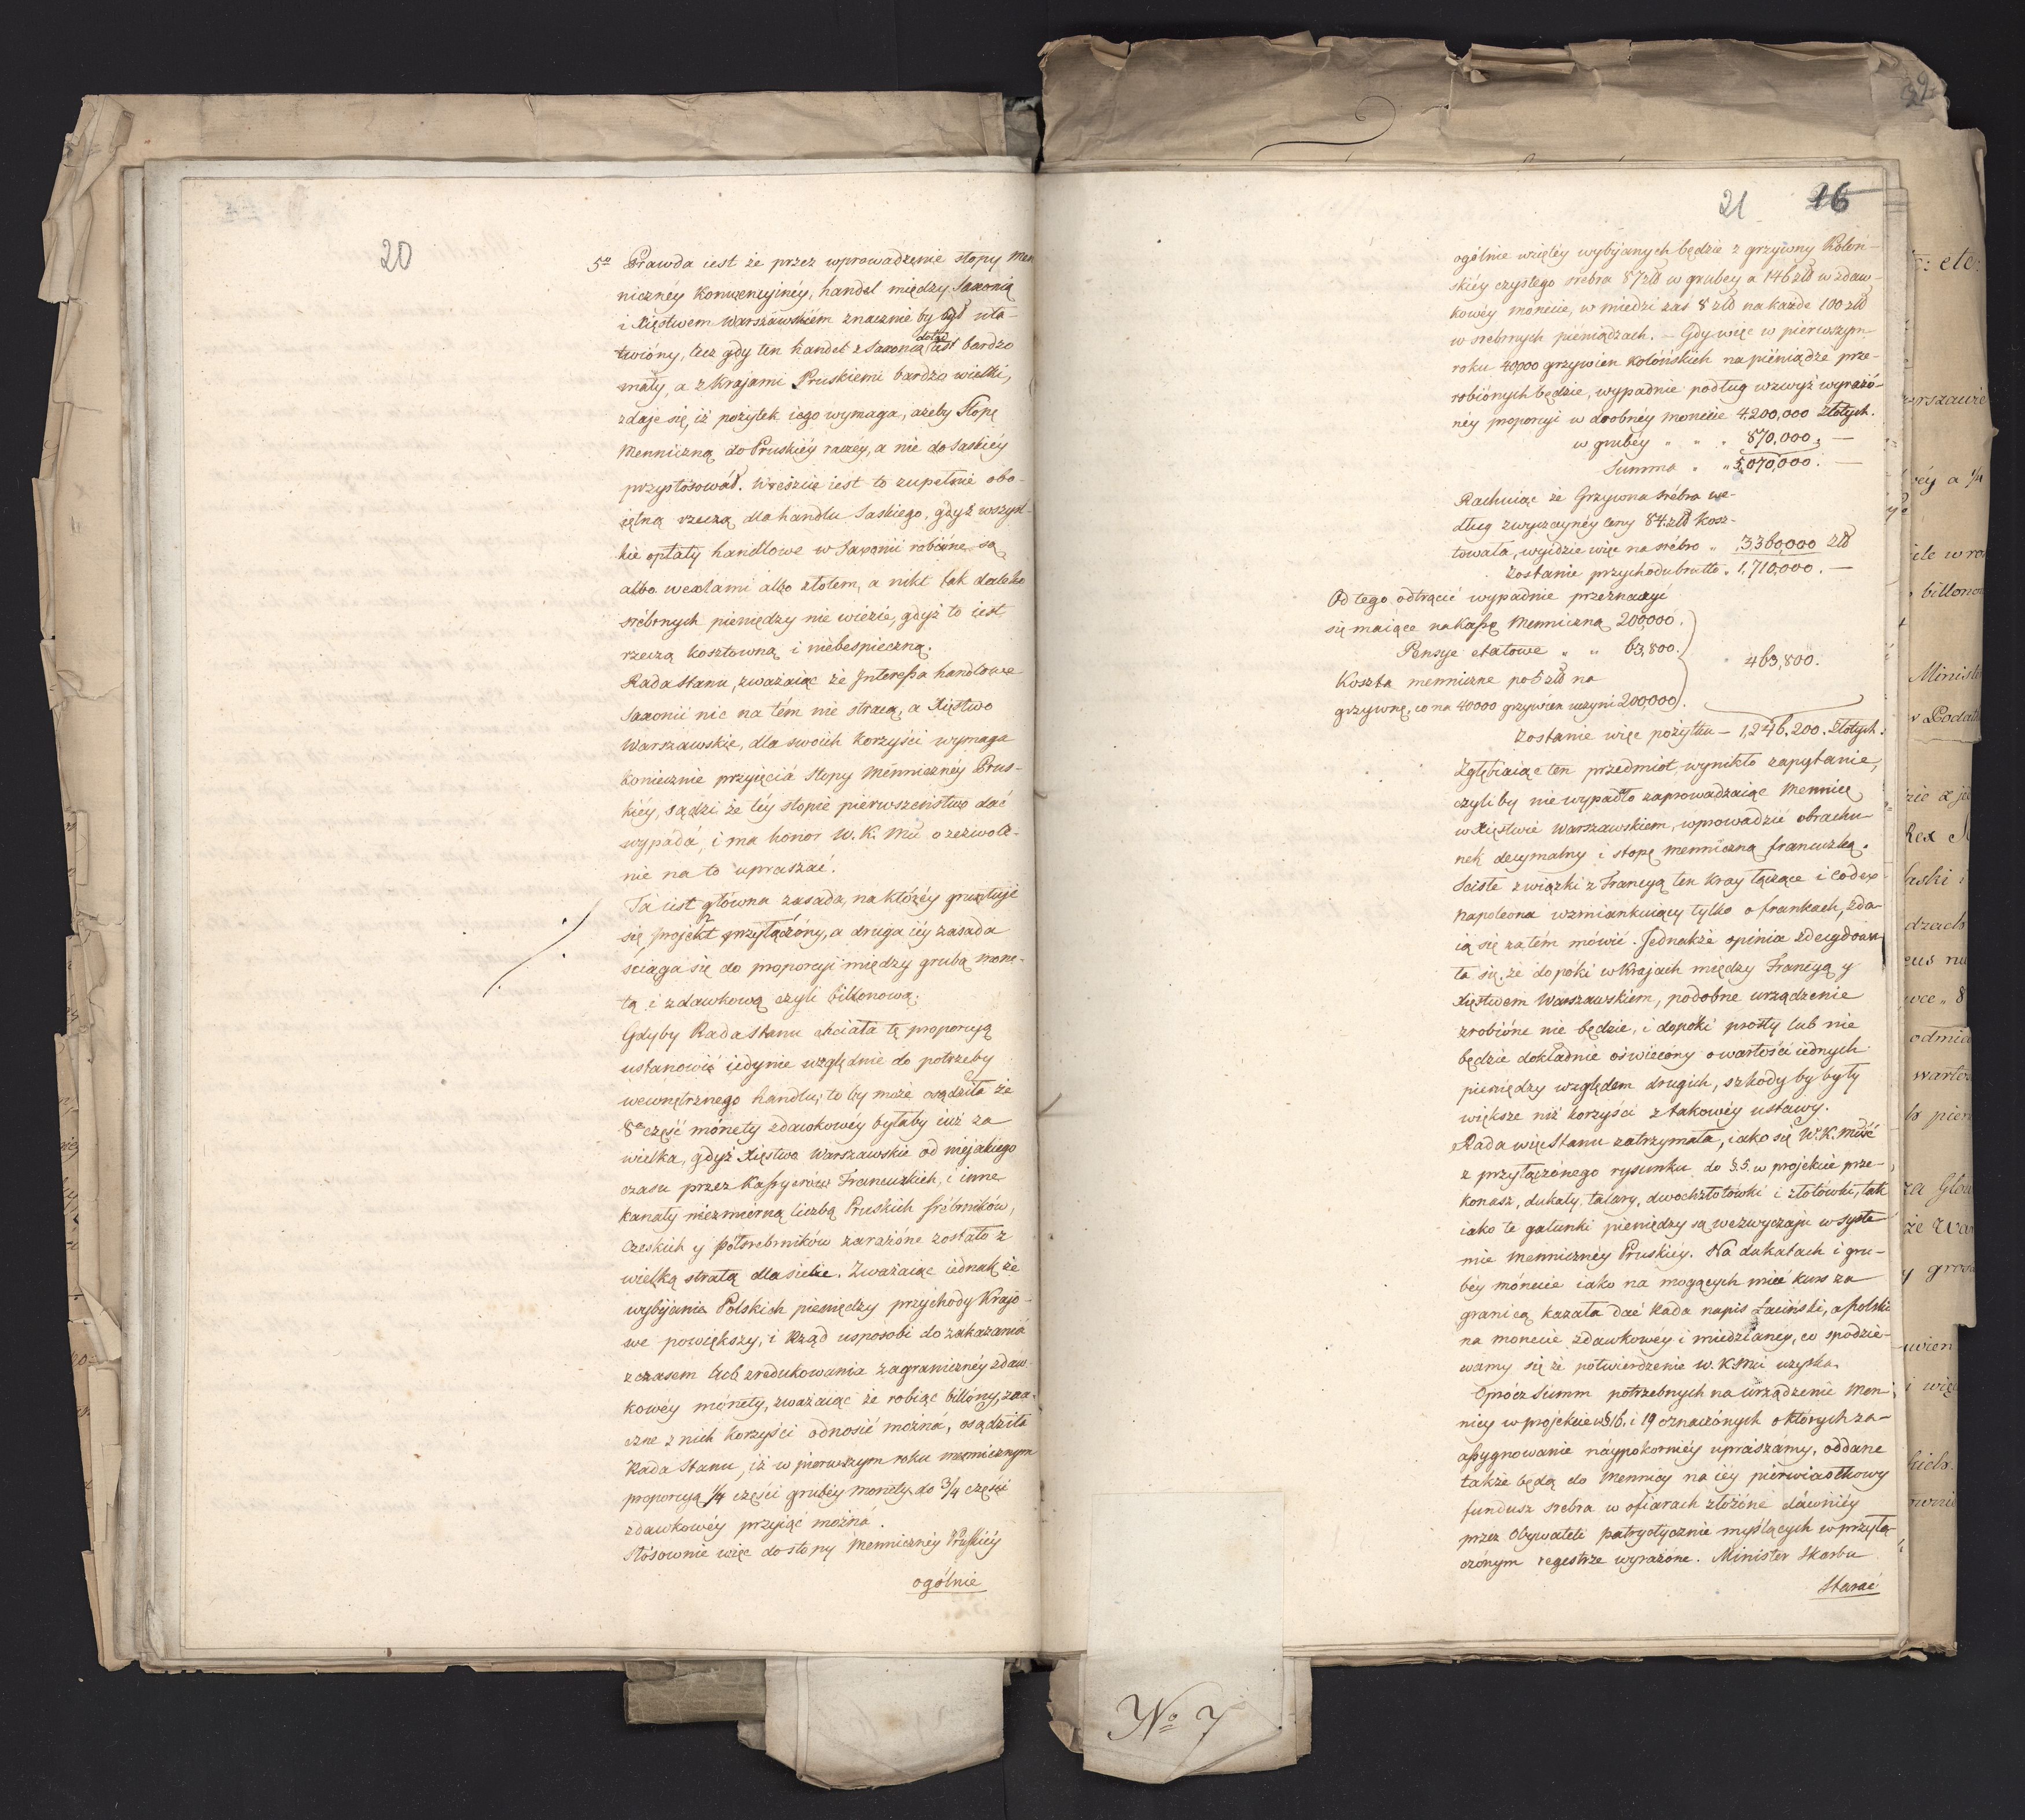 20
5º Prawda iest że przez wprowadzenie stopy Men
niczney Konwencyiney, handel między Saxonią
i Xięstwem Warszawskiem znacznie by był uła-
twiony, lecz gdy ten handel z Saxonią dotąd iest bardzo
mały, a z Krajami Pruskiemi bardzo wielki,
zdaje się, iż pożytek iego wymaga, ażeby Stopę
Menniczną do Pruskiéy raczéy, a nie do Saskiéy
przystosował. Wreszcie iest to zupełnie obo-
iętną rzeczą dla handlu Saskiego, gdyż wszyst-
kie opłaty handlowe w Saxonii robione są
albo wexlami albo złotem, a nikt tak daleko
srébrnych pieniędzy nie wiezie, gdyż to iest
rzeczą kosztowną i niebespieczną.
Rada Stanu, zważaiąc że Interessa handlowe
Saxonii nic na tém nie stracą, a Xięstwo
Warszawskie, dla swoich korzyści wymaga
koniecznie przyięcia stopy Menniczney Prus-
kiéy, sądzi że téy stopie pierwszeństwo dać
wypada, i ma honor W. K. Mci o zezwole-
nie na to upraszać.
Ta iest główna zasada, na któréy gruntuje
się projekt przyłączony, a druga iéy zasada
ściąga się do proporcyi między grubą mone-
tą i zdawkową czyli billonową.
Gdyby Rada Stanu chciała tę proporcyą
ustanowić iedynie względnie do potrzeby
wewnętrznego handlu; to by może osądziła że
8ª część monety zdawkowéy byłaby iuż za
wielka, gdyż Xięstwo Warszawskie od niejakiego
czasu przez Kassyerów Francuzkich, i inne
kanały niezmierną liczbą Pruskich srébrników,
Czeskich y półsrebrników zarażone zostało z
wielką stratą dla siebie. Zważaiąc iednak że
wybijanie Polskich pieniędzy przychody Krajo-
we powiększy, i Rząd usposobi do zakazania
z czasem lub zredukowania zagraniczney zdaw-
kowéy monety, zważaiąc że robiąc billony, zna-
czne z nich korzyści odnosić można, osądziła
Rada Stanu, iż w pierwszym roku mennicznym
proporcyą 1/4 części grubéy monety do 3/4 części
zdawkowéy przyiąć można.
Stósownie więc do stopy Menniczney Pruskiéy
ogólnie
21 16
ogólnie wziętéy wybijanych będzie z grzywny Koloń-
skiéy czystego srebra 87 złł w grubéy a 146 złł w zdaw-
kowéy monecie, w miedzi zaś 8 złł na każde 100 złł
w srebrnych pieniądzach. – Gdy więc w piérwszym
roku 40,000 grzywien kolońskich na pieniądze prze-
robionych będzie, wypadnie podług wzwyż wyrażo-
néy proporcyi w drobnéy monecie 4,200,000 złotych.
w grubéy " " " 870,000. —
Summa " " 5,070,000. —
Rachuiąc że Grzywna srébra we-
dług zwyczaynéy ceny 84 złł kosz-
towała, wyidzie więc na srébro " 3,360,000 złł
Zostanie przychodu brutto " 1,710,000. —
Od tego odtrącić wypadnie przeznaczyć
się maiące na Kassę Menniczną 200,000.
Pensye etatowe " " 63,800. " 463,800.
Koszta menniczne po 5 złł na
grzywnę, co na 40000 grzywien uczyni 200,000.
Zostanie więc pożytku – 1,246,200. złotych.
Zgłębiaiąc ten przedmiot, wynikło zapytanie,
czyliby nie wypadło zaprowadzaiąc Mennicę
w Xięstwie Warszawskiem, wprowadzić obrachu-
nek decymalny i stopę menniczną francuzką.
Sciste związki z Francyą ten Kray łączące i Codex
Napoleona wzmiankuiący tylko o frankach, zda-
ią się za tém mówić. Jednakże opinia zdecydowa-
ła się, że dopóki w Krajach między Francyą y
Xięstwem Warszawskiem, podobne urządzenie
zrobione nie będzie, i dopóki prosty lub nie
będzie dokładnie oświecony o wartości iednych
pieniędzy względem drugich, szkody by były
większe niż korzyści z takowéy ustawy.
Rada więc Stanu zatrzymała, iako się W. K. Mość
z przyłączonego rysunku do §. 5. w projekcie prze-
konasz, dukaty, talary, dwochzłotówki i złotówki, tak
iako te gatunki pieniędzy są we zwyczaju w syste-
mie menniczney Pruskiéy. Na dukatach i gru-
béy monecie iako na mogących mieć kurs za
granicą kazała dać Rada napis Łaciński, a polski
na monecie zdawkowéy i miedzianéy, co spodzie-
wamy się że potwierdzenie W. K Mci uzyska.
Oprócz Summ potrzebnych na urządzenie Men-
nicy w projekcie w § 16, i 19 oznaczonych o których za-
assygnowanie náypokorniéy upraszamy, oddane
także będą do Mennicy na iéy pierwiastkowy
fundusz srebra w ofiarach złożone dáwniéy
przez Obywateli patryotycznie myślących w przyłą-
czonym regestrze wyrażone. Minister Skarbu
Starać
32
Nº 7